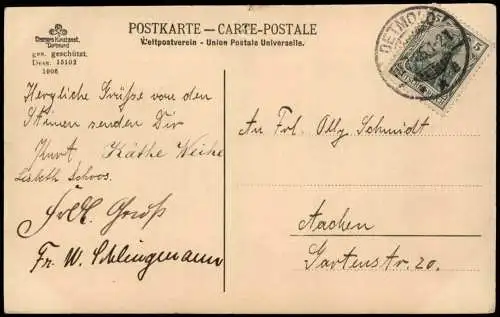 POSTKARTE – CARTE-POSTALE
Weltpostverein - Union Postale Universelle.
Dortmund
ges. geschützt.
Dess. 15102
1906
DETMOLD
5
Herzliche Grüße von den
senden Dir
Kurt, Käthe Weihe
Lisbeth Schoos.
Gruß
Fr. W. Schlingmann
An Frl. Olly Schmidt
Aachen
Gartenstr. 20.